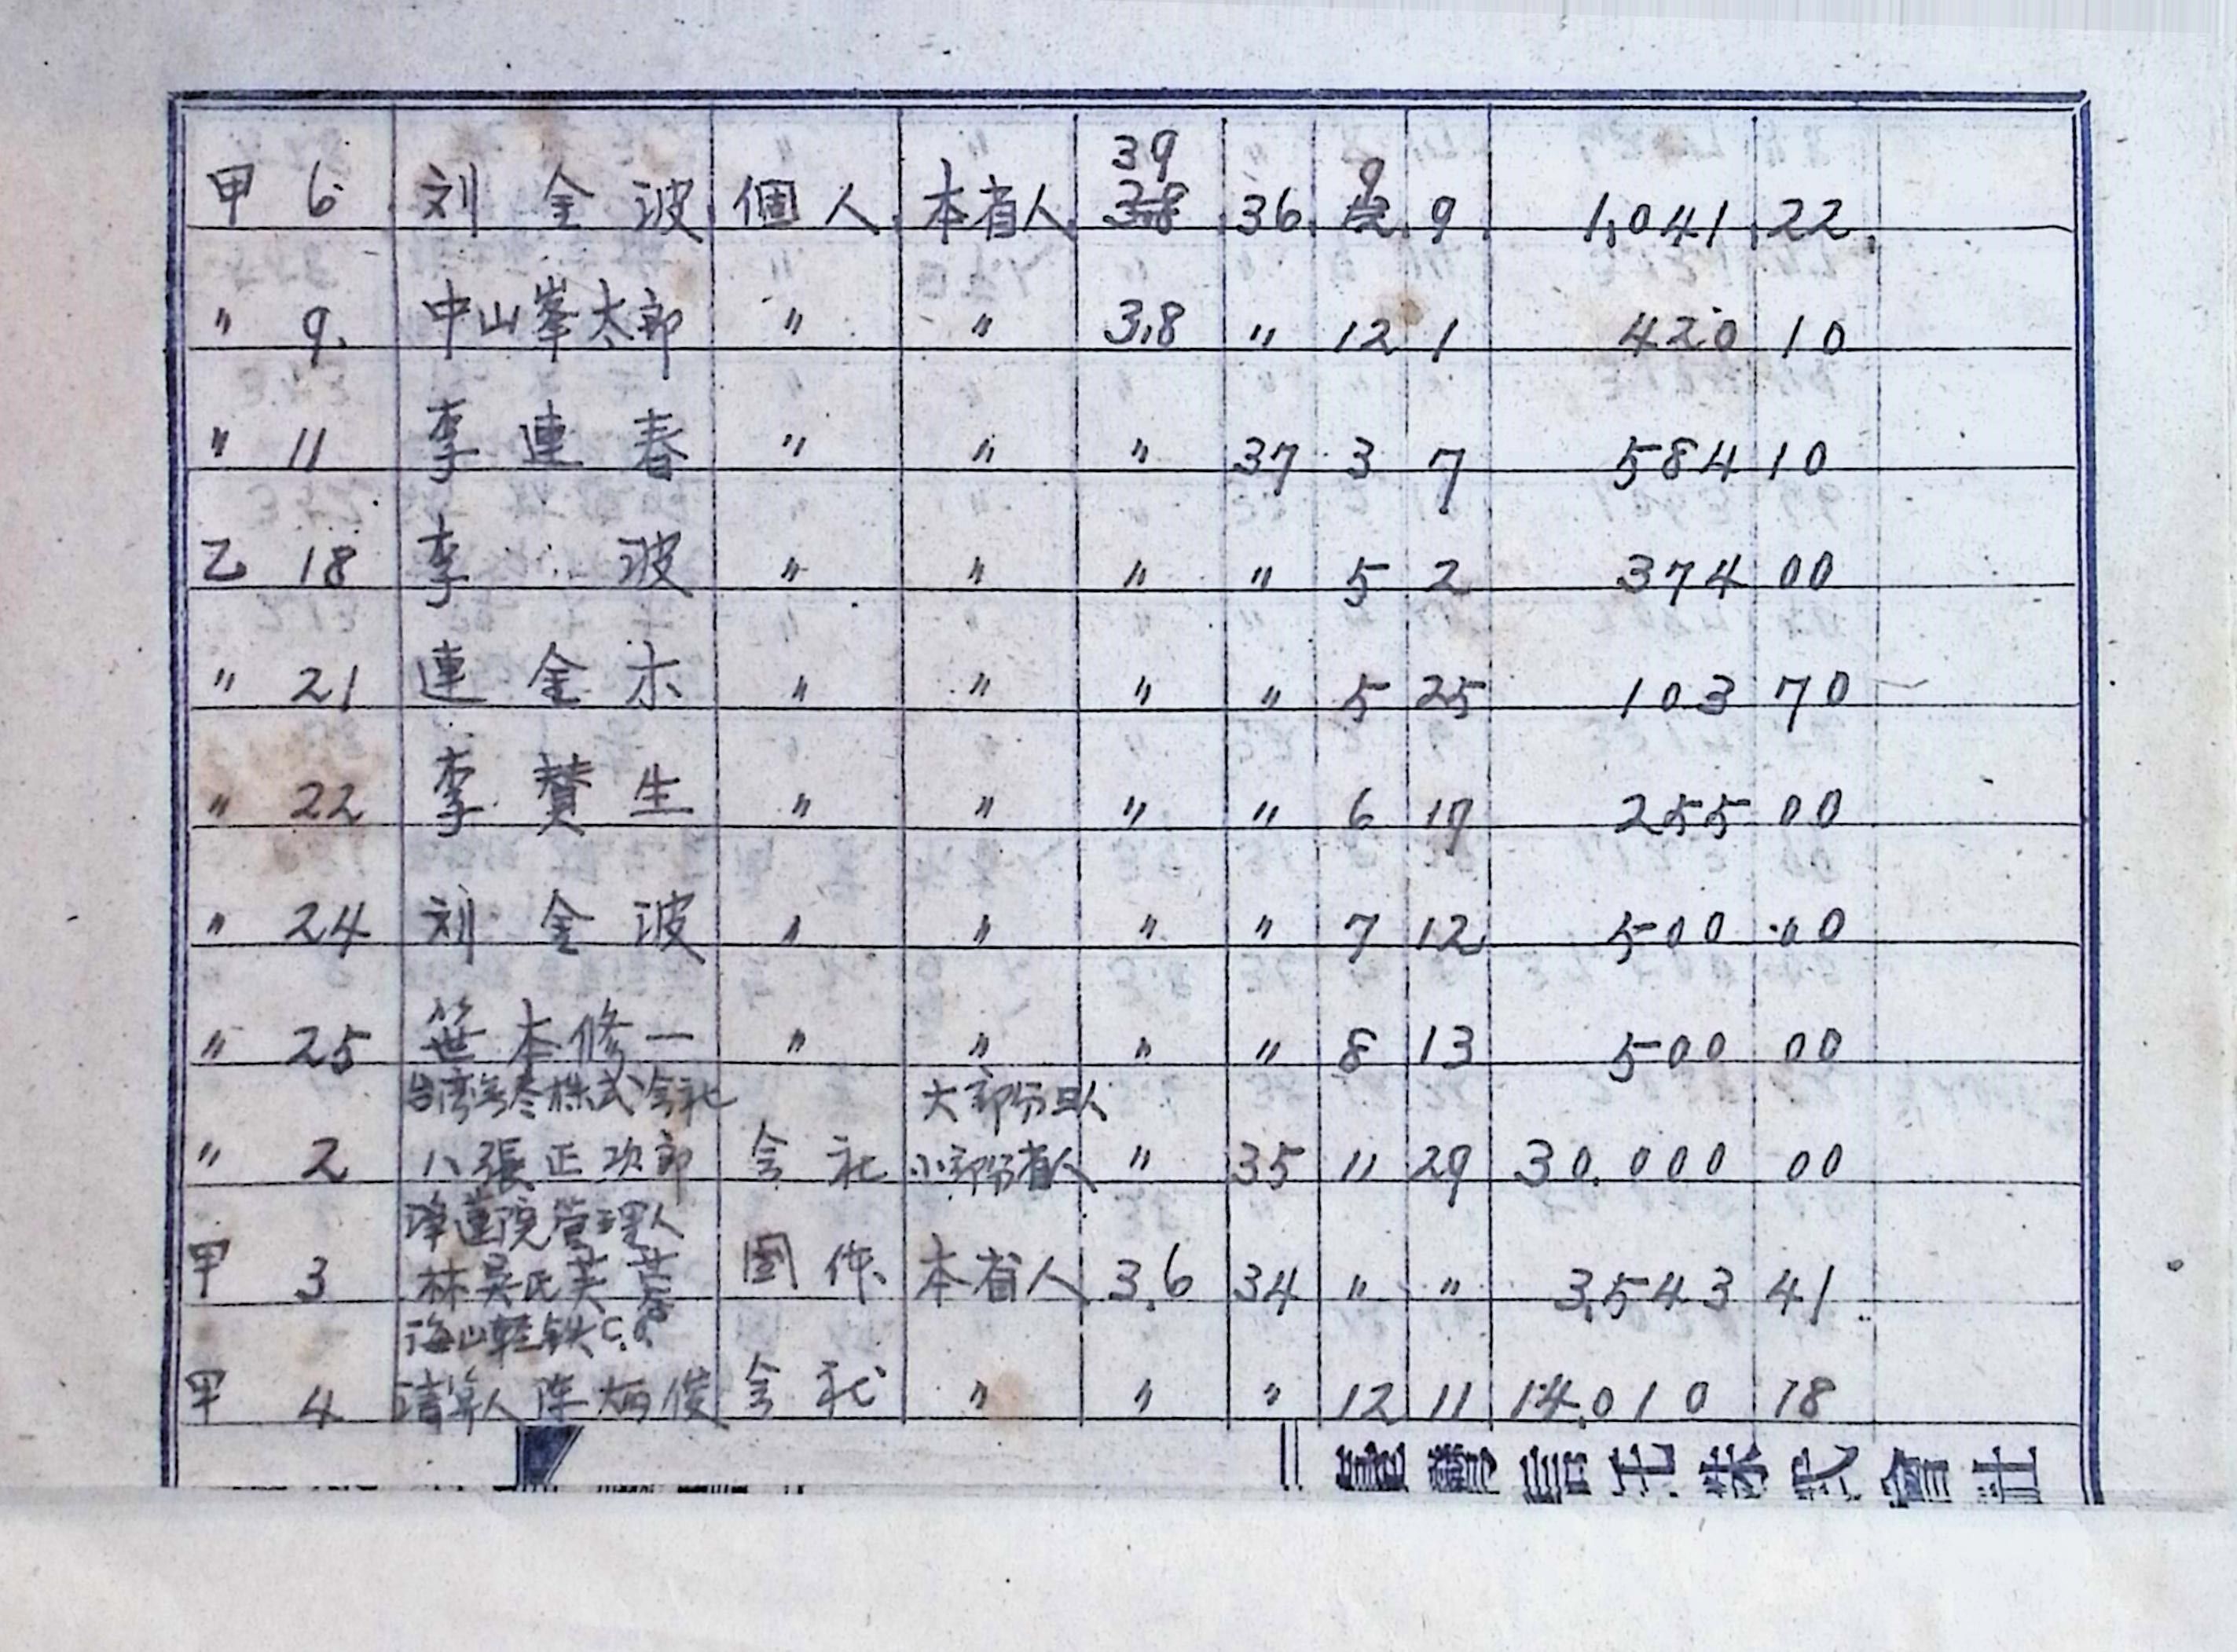 甲 6 刘金波 個人 本省人 39 3.8 36 9 12 9 1,041 22
〃 9 中山峯太郎 〃 〃 3.8 〃 12 1 420 10
〃 11 李連春 〃 〃 〃 37 3 7 584 10
乙 18 李波 〃 〃 〃 〃 5 2 374 00
〃 21 連金木 〃 〃 〃 〃 5 25 103 70
〃 22 李賛生 〃 〃 〃 〃 6 17 255 00
〃 24 刘金波 〃 〃 〃 〃 7 12 500 00
〃 25 笹本修一 〃 〃 〃 〃 8 13 500 00
台湾 株式会社 大部分日人
〃 2 八張正次郎 会社 小部分省人 〃 35 11 29 30.000 00
蓮院管理人
甲 3 林吳氏芙蓉 團体 本省人 3.6 34 〃 〃 3,543 41
海山軽鉄C.O.
甲 4 清算人陳炳俊 会社 〃 〃 〃 12 11 14,010 18
株式會社